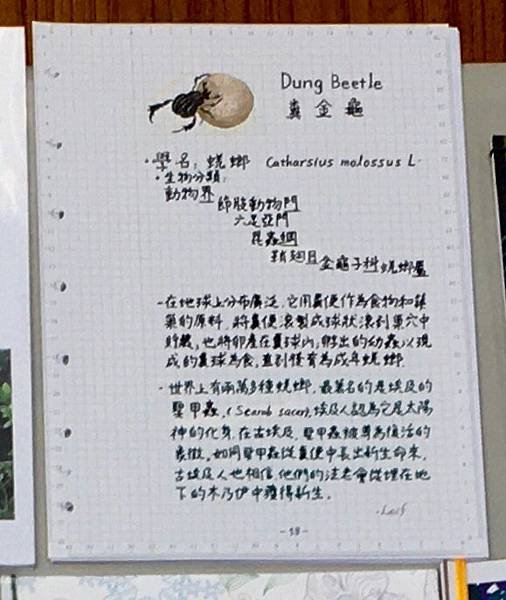 Dung Beetle
糞金龜
·學名: 蜣螂 Catharsius molossus L.
·生物分類:
動物界
節肢動物門
六足亞門
昆蟲綱
鞘翅目金龜子科蜣螂屬
-在地球上分布廣泛，它用糞便作為食物和築
巢的原料，將糞便滾製成球狀滾到巢穴中
貯藏，也將卵產在糞球內，孵出的幼蟲以現
成的糞球為食，直到發育為成年蜣螂.
-世界上有兩萬多種蜣螂，最著名的是埃及的
聖甲蟲，(Scarab sacer)，埃及人認為它是太陽
神的化身，在古埃及，聖甲蟲被尊為復活的
象徵，如同聖甲蟲從糞便中長出新生命來，
古埃及人也相信，他們的法老會從埋在地
下的木乃伊中獲得新生。
-Leif